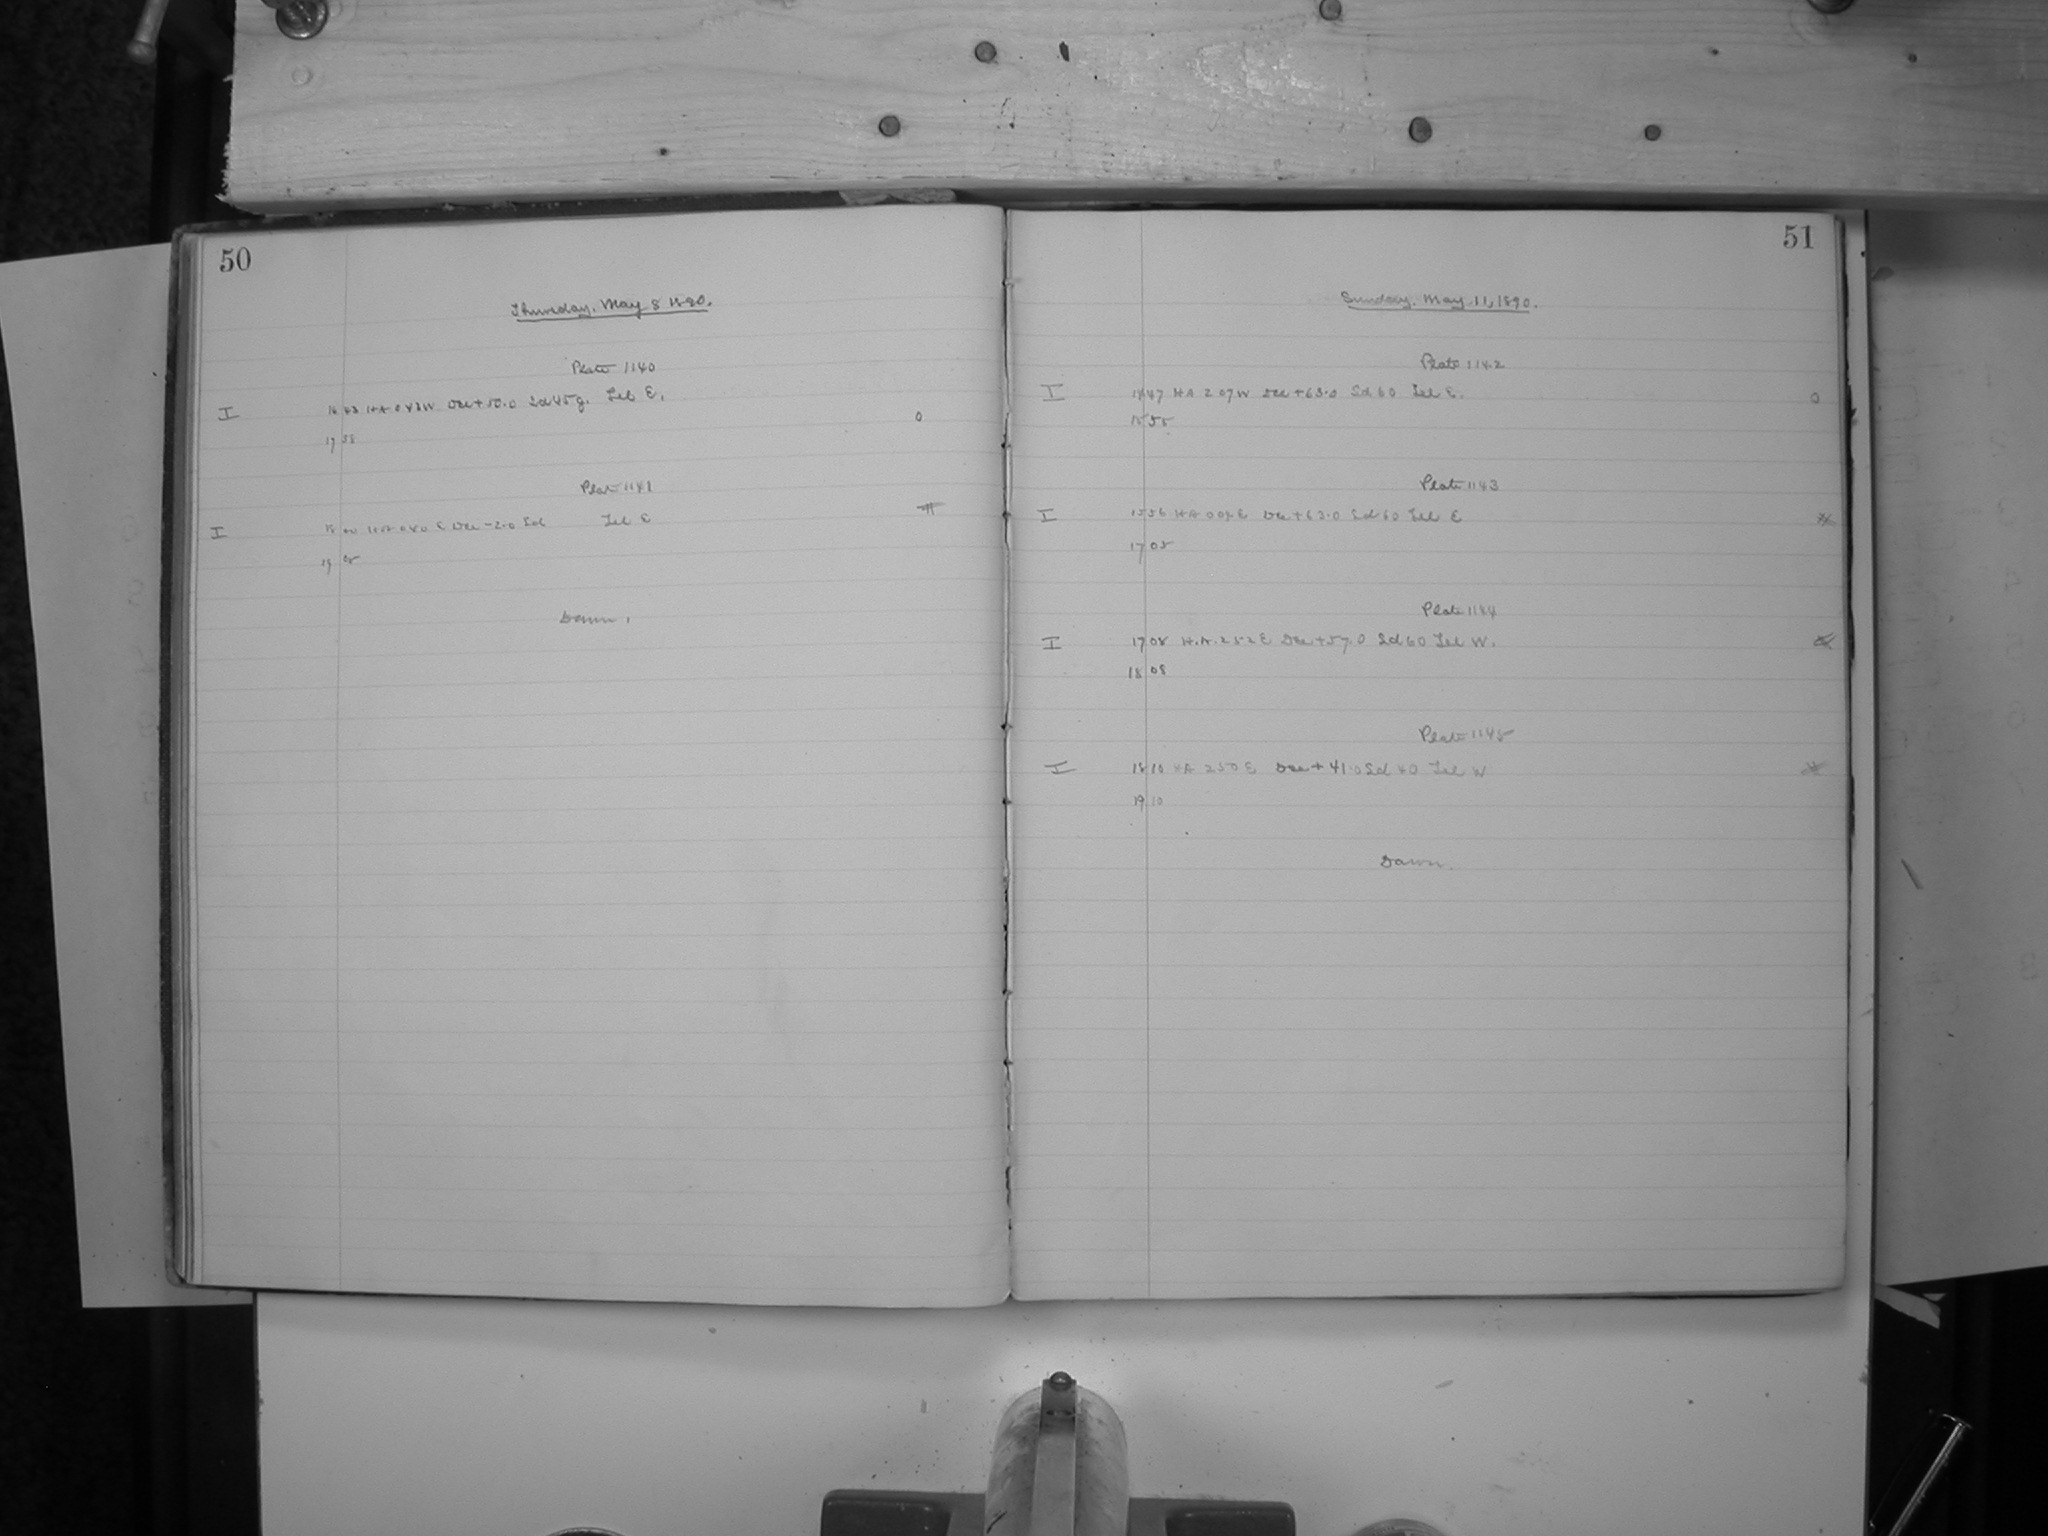 50
Thursday. May 8 1890.
Plate 1140
I 16 43 HA 0 43 W Dec + 50.0 Sd 45 g. Tel E.
0
17 58
Plate 1141
I 18 00 HA 0 40 E Dec - 2.0 Sd Tel E
19 05
Dawn.
51
Sunday. May 11, 1890.
Plate 1142
I 47 HA 2 07 W Dec + 63.0 Sd 60 Tel E. 0
15 55
Plate 1143
I 15 56 HA E Dec + 63.0 Sd 60 Tel E
17 05
Plate 1144
I 17 08 H.A. 2 52 E Dec + 57.0 Sd 60 Tel W.
18 08
Plate 1145
I 18 10 HA 2 50 E Dec + 41.0 Sd 40 Tel W
19 10
Dawn.